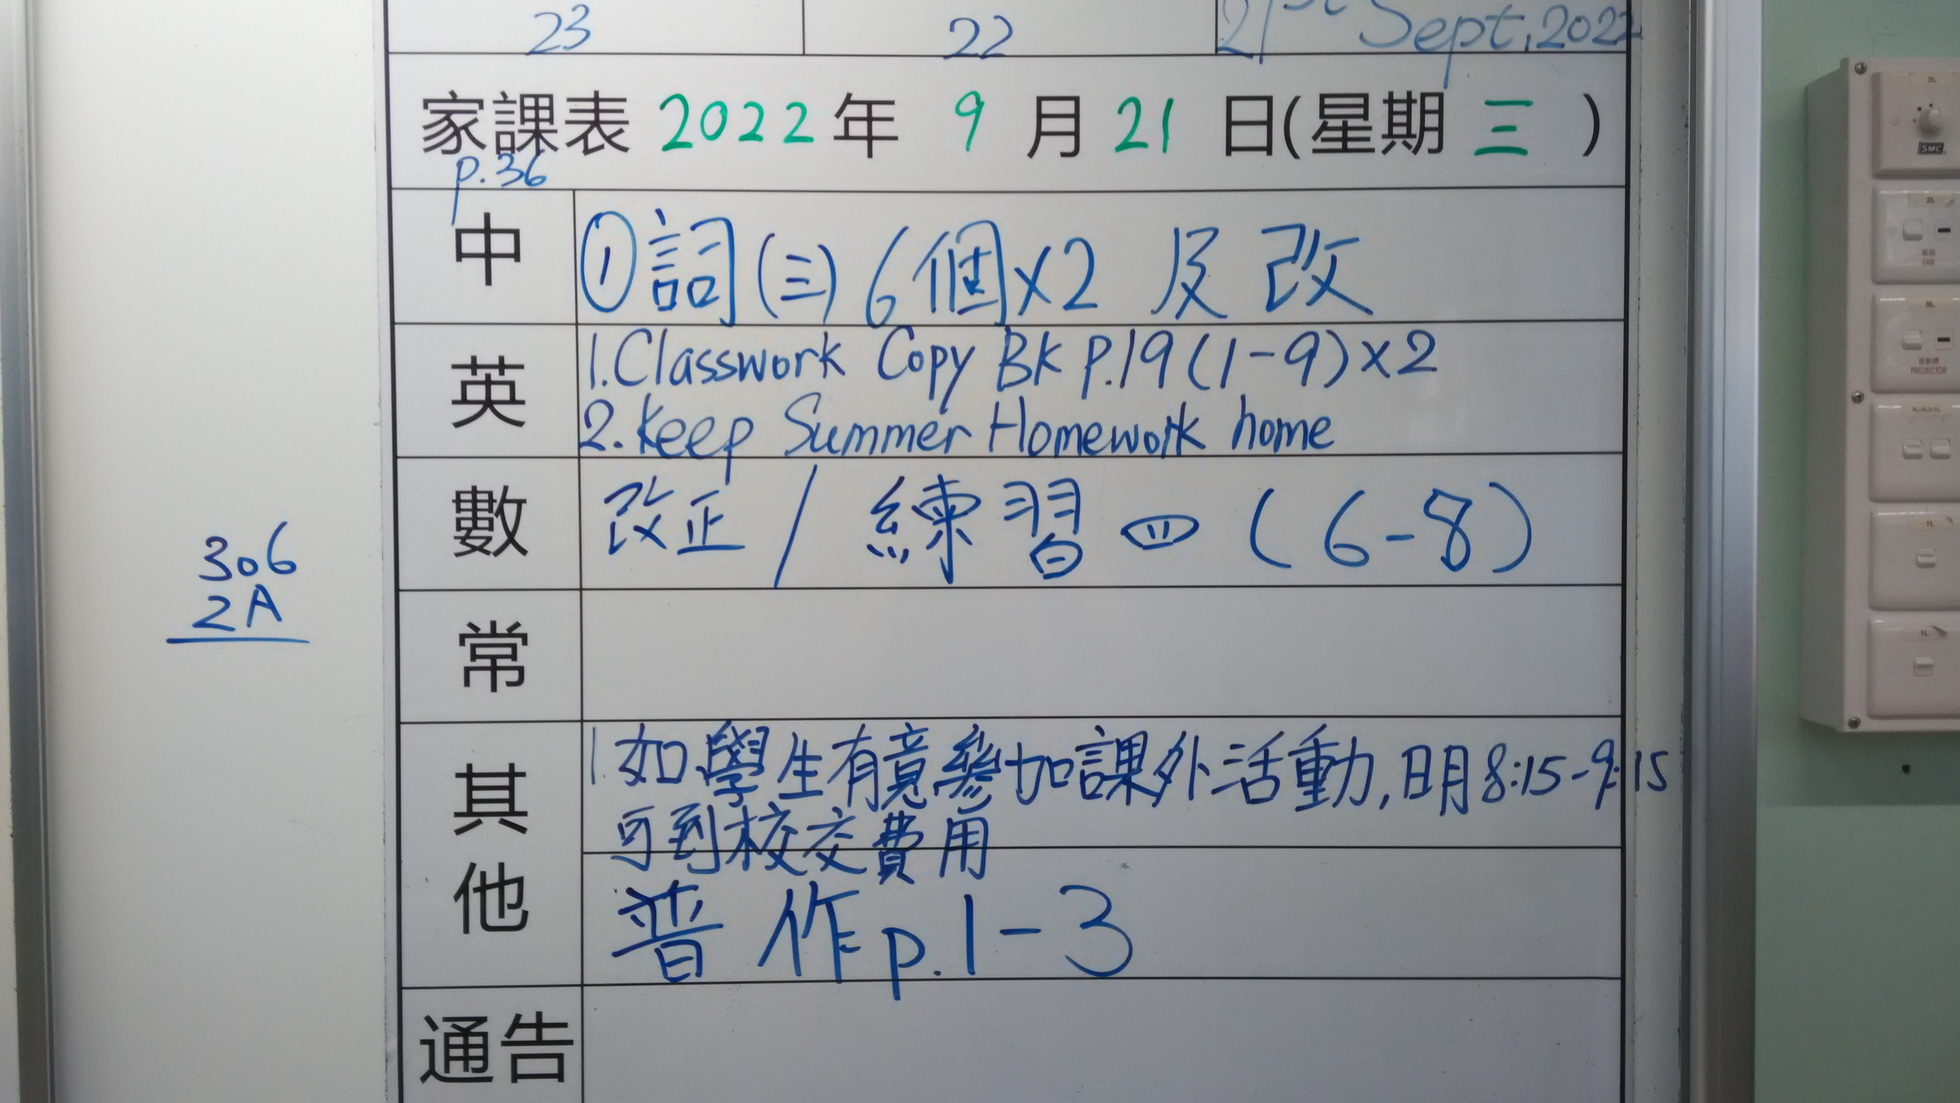 23
22
21st Sept, 2022
家課表 2022 年 9 月 21 日(星期 三 )
p.36
中
①詞(三) 6個×2 及 改
英
1.Classwork Copy BK P.19 (1-9)×2
2.Keep Summer Homework home
數
改正 / 練習四 (6-8)
306
2A
常
其他
1.如學生有意參加課外活動,明日8:15-9:15
可到校交費用
普 作p.1-3
通告